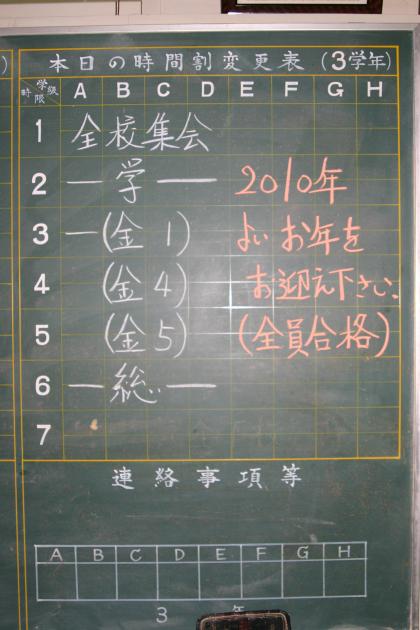 本日の時間割変更表(3学年)
学級 時限 A B C D E F G H
1 全校集会
2 ー学ー 2010年
3 ー(金1) よいお年を
4 (金4) お迎え下さい。
5 (金5) (全員合格)
6 ー総ー
7
連絡事項等
A B C D E F G H
3 年